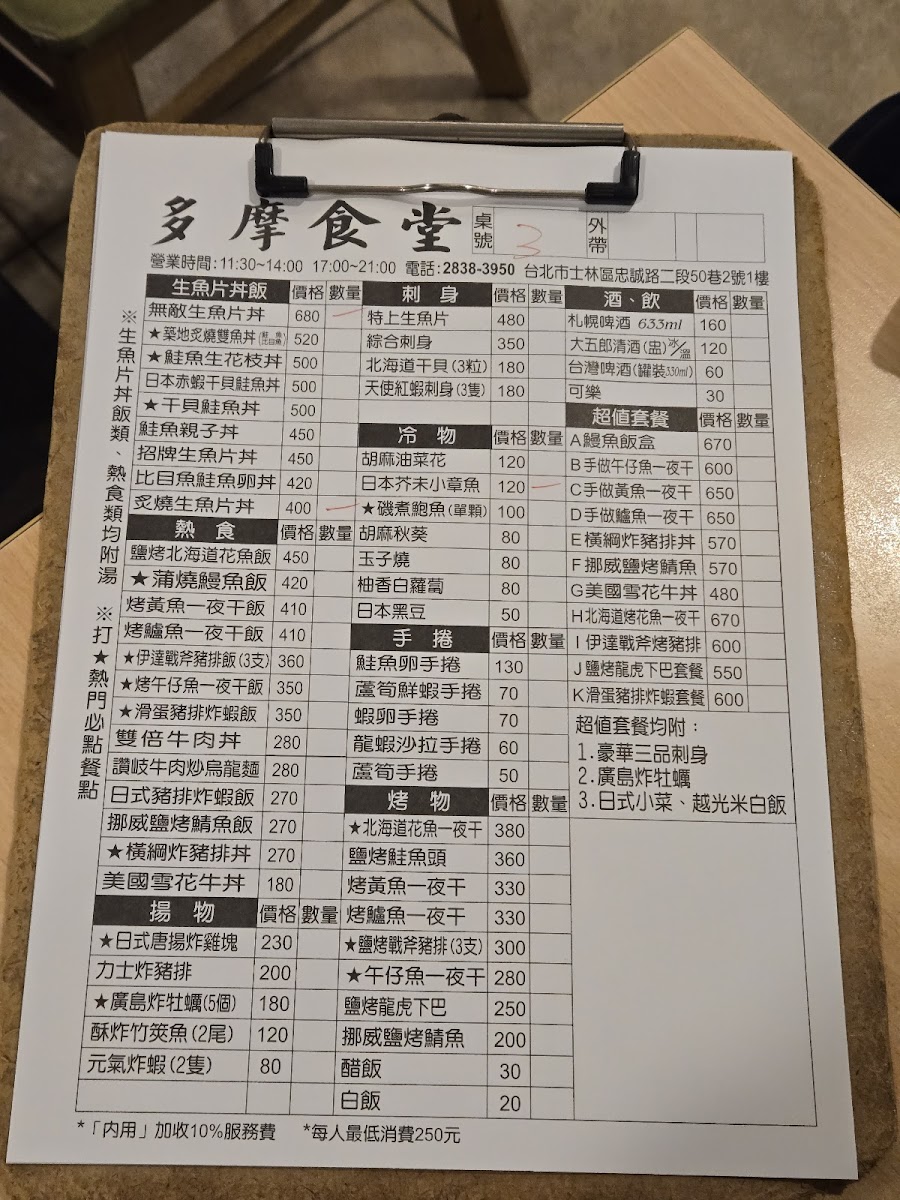 多摩食堂
桌號 3 外帶
營業時間:11:30~14:00 17:00~21:00 電話:2838-3950 台北市士林區忠誠路二段50巷2號1樓
※生魚片丼飯類、熱食類均附湯 ※打★熱門必點餐點
生魚片丼飯 價格 數量
無敵生魚片丼 680
★築地炙燒雙魚丼 520
★鮭魚生花枝丼 500
日本赤蝦干貝鮭魚丼 500
★干貝鮭魚丼 500
鮭魚親子丼 450
招牌生魚片丼 450
比目魚鮭魚卵丼 420
炙燒生魚片丼 400
熱食 價格 數量
鹽烤北海道花魚飯 450
★蒲燒鰻魚飯 420
烤黃魚一夜干飯 410
烤鱸魚一夜干飯 410
★伊達戰斧豬排飯(3支) 360
★烤午仔魚一夜干飯 350
★滑蛋豬排炸蝦飯 350
雙倍牛肉丼 280
讚岐牛肉炒烏龍麵 280
日式豬排炸蝦飯 270
挪威鹽烤鯖魚飯 270
★橫綱炸豬排丼 270
美國雪花牛丼 180
揚物 價格 數量
★日式唐揚炸雞塊 230
力士炸豬排 200
★廣島炸牡蠣(5個) 180
酥炸竹筴魚(2尾) 120
元氣炸蝦(2隻) 80
刺身 價格 數量
特上生魚片 480
綜合刺身 350
北海道干貝(3粒) 180
天使紅蝦刺身(3隻) 180
冷物 價格 數量
胡麻油菜花 120
日本芥末小章魚 120
★磯煮鮑魚(單顆) 100
胡麻秋葵 80
玉子燒 80
柚香白蘿蔔 80
日本黑豆 50
手捲 價格 數量
鮭魚卵手捲 130
蘆筍鮮蝦手捲 70
蝦卵手捲 70
龍蝦沙拉手捲 60
蘆筍手捲 50
烤物 價格 數量
★北海道花魚一夜干 380
鹽烤鮭魚頭 360
烤黃魚一夜干 330
烤鱸魚一夜干 330
★鹽烤戰斧豬排(3支) 300
★午仔魚一夜干 280
鹽烤龍虎下巴 250
挪威鹽烤鯖魚 200
醋飯 30
白飯 20
酒、飲 價格 數量
札幌啤酒 633ml 160
大五郎清酒(盅)冰/溫 120
台灣啤酒(罐裝330ml) 60
可樂 30
超值套餐 價格 數量
A鰻魚飯盒 670
B手做午仔魚一夜干 600
C手做黃魚一夜干 650
D手做鱸魚一夜干 650
E橫綱炸豬排丼 570
F挪威鹽烤鯖魚 570
G美國雪花牛丼 480
H北海道烤花魚一夜干 670
I伊達戰斧烤豬排 600
J鹽烤龍虎下巴套餐 550
K滑蛋豬排炸蝦套餐 600
超值套餐均附:
1.豪華三品刺身
2.廣島炸牡蠣
3.日式小菜、越光米白飯
*「內用」加收10%服務費 *每人最低消費250元